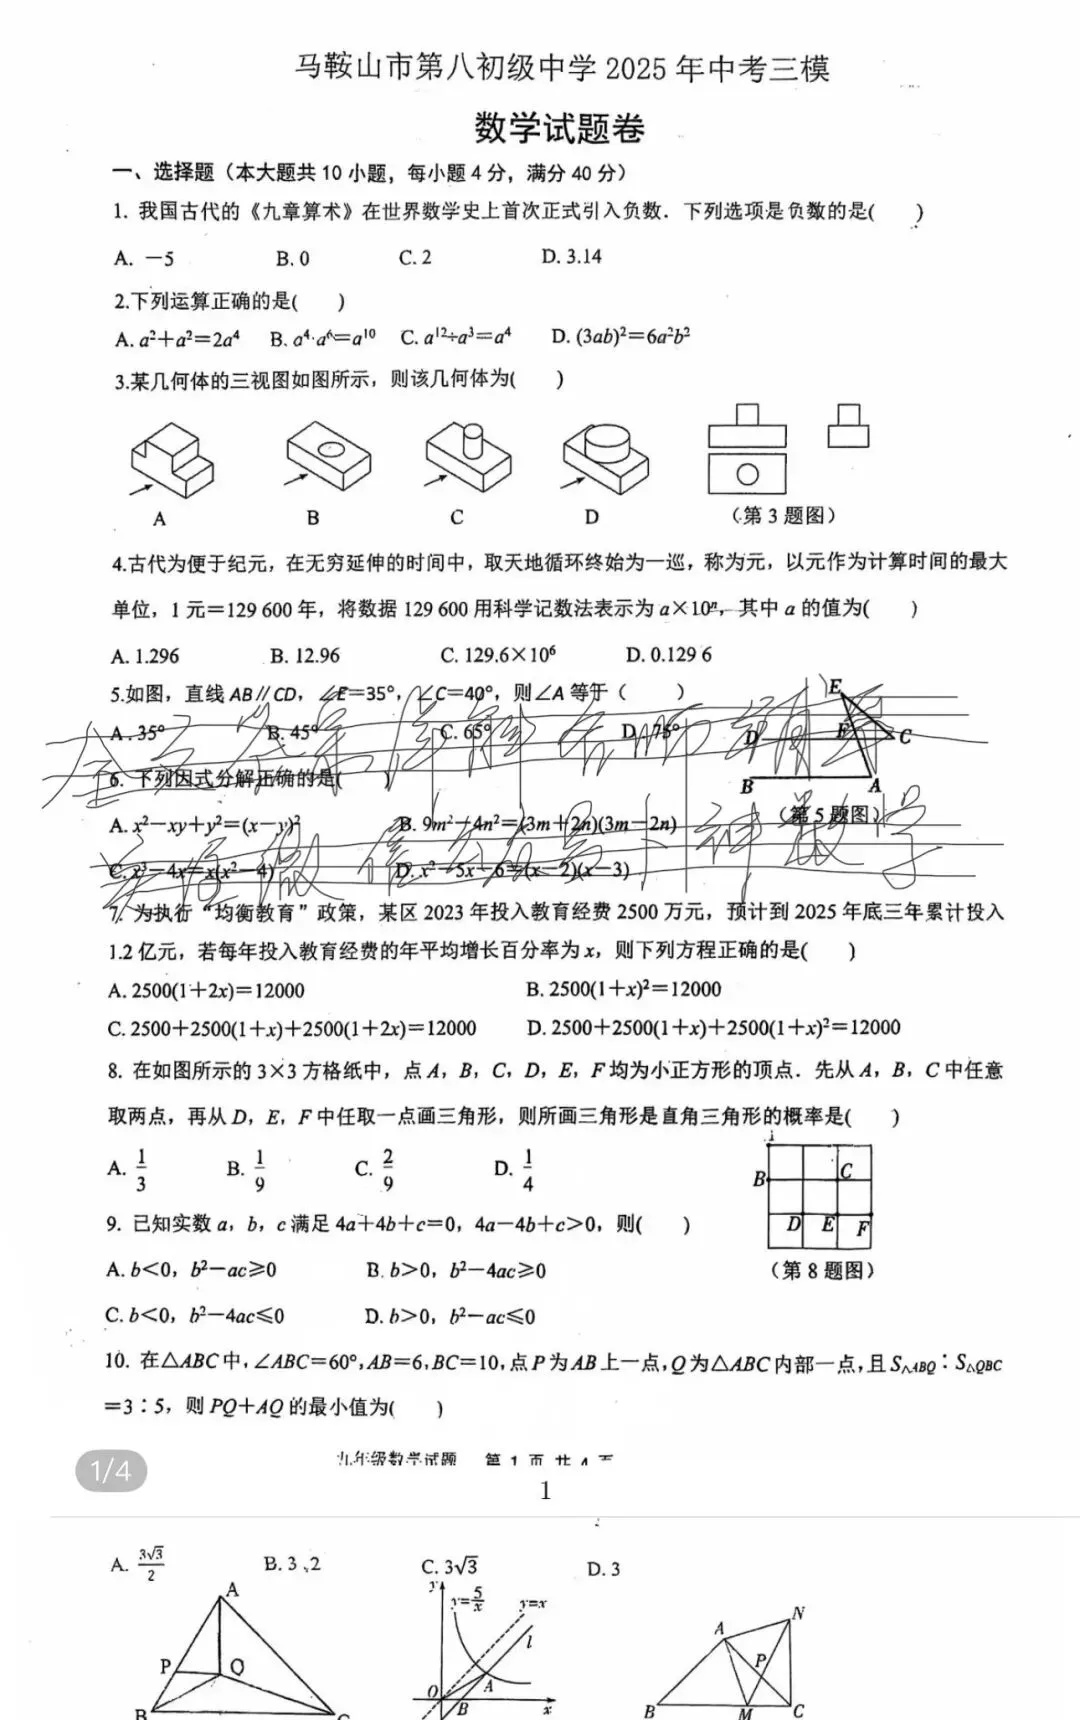 马鞍山市第八初级中学 2025 年中考三模
数学试题卷
一、选择题（本大题共 10 小题，每小题 4 分，满分 40 分）
1. 我国古代的《九章算术》在世界数学史上首次正式引入负数．下列选项是负数的是(　　)
A. －5　B. 0　C. 2　D. 3.14
2.下列运算正确的是(　　)
A. a²＋a²＝2a⁴　B. a⁴·a⁶＝a¹⁰　C. a¹²÷a³＝a⁴　D. (3ab)²＝6a²b²
3.某几何体的三视图如图所示，则该几何体为(　　)
A　B　C　D　（第 3 题图）
4.古代为便于纪元，在无穷延伸的时间中，取天地循环终始为一巡，称为元，以元作为计算时间的最大
单位，1 元＝129 600 年，将数据 129 600 用科学记数法表示为 a×10ⁿ，其中 a 的值为(　　)
A. 1.296　B. 12.96　C. 129.6×10⁶　D. 0.129 6
5.如图，直线 AB∥CD，∠E＝35°，∠C＝40°，则∠A 等于（　　）
A. 35°　B. 45°　C. 65°　D. 75°
E
D　F　C
B　A
（第 5 题图）
6. 下列因式分解正确的是(　　)
A. x²－xy＋y²＝(x－y)²　B. 9m²－4n²＝(3m＋2n)(3m－2n)
C. x³－4x＝x(x²－4)　D. x²－5x－6＝(x－2)(x－3)
7. 为执行“均衡教育”政策，某区 2023 年投入教育经费 2500 万元，预计到 2025 年底三年累计投入
1.2 亿元，若每年投入教育经费的年平均增长百分率为 x，则下列方程正确的是(　　)
A. 2500(1＋2x)＝12000　B. 2500(1＋x)²＝12000
C. 2500＋2500(1＋x)＋2500(1＋2x)＝12000　D. 2500＋2500(1＋x)＋2500(1＋x)²＝12000
8. 在如图所示的 3×3 方格纸中，点 A，B，C，D，E，F 均为小正方形的顶点．先从 A，B，C 中任意
取两点，再从 D，E，F 中任取一点画三角形，则所画三角形是直角三角形的概率是(　　)
A. 1/3　B. 1/9　C. 2/9　D. 1/4
B　C
D　E　F
（第 8 题图）
9. 已知实数 a，b，c 满足 4a＋4b＋c＝0，4a－4b＋c＞0，则(　　)
A. b＜0，b²－ac≥0　B. b＞0，b²－4ac≥0
C. b＜0，b²－4ac≤0　D. b＞0，b²－ac≤0
10. 在△ABC 中，∠ABC＝60°，AB＝6，BC＝10，点 P 为 AB 上一点，Q 为△ABC 内部一点，且 S△ABQ∶S△QBC
＝3∶5，则 PQ＋AQ 的最小值为(　　)
九年级数学试题　第 1 页 共 4 页
1/4
1
A. 3√3/2　B. 3　C. 3√3　D. 3
A　P　Q　B　C
y　y=5/x　y=x　l　O　A　B　x
N　A　P　B　M　C